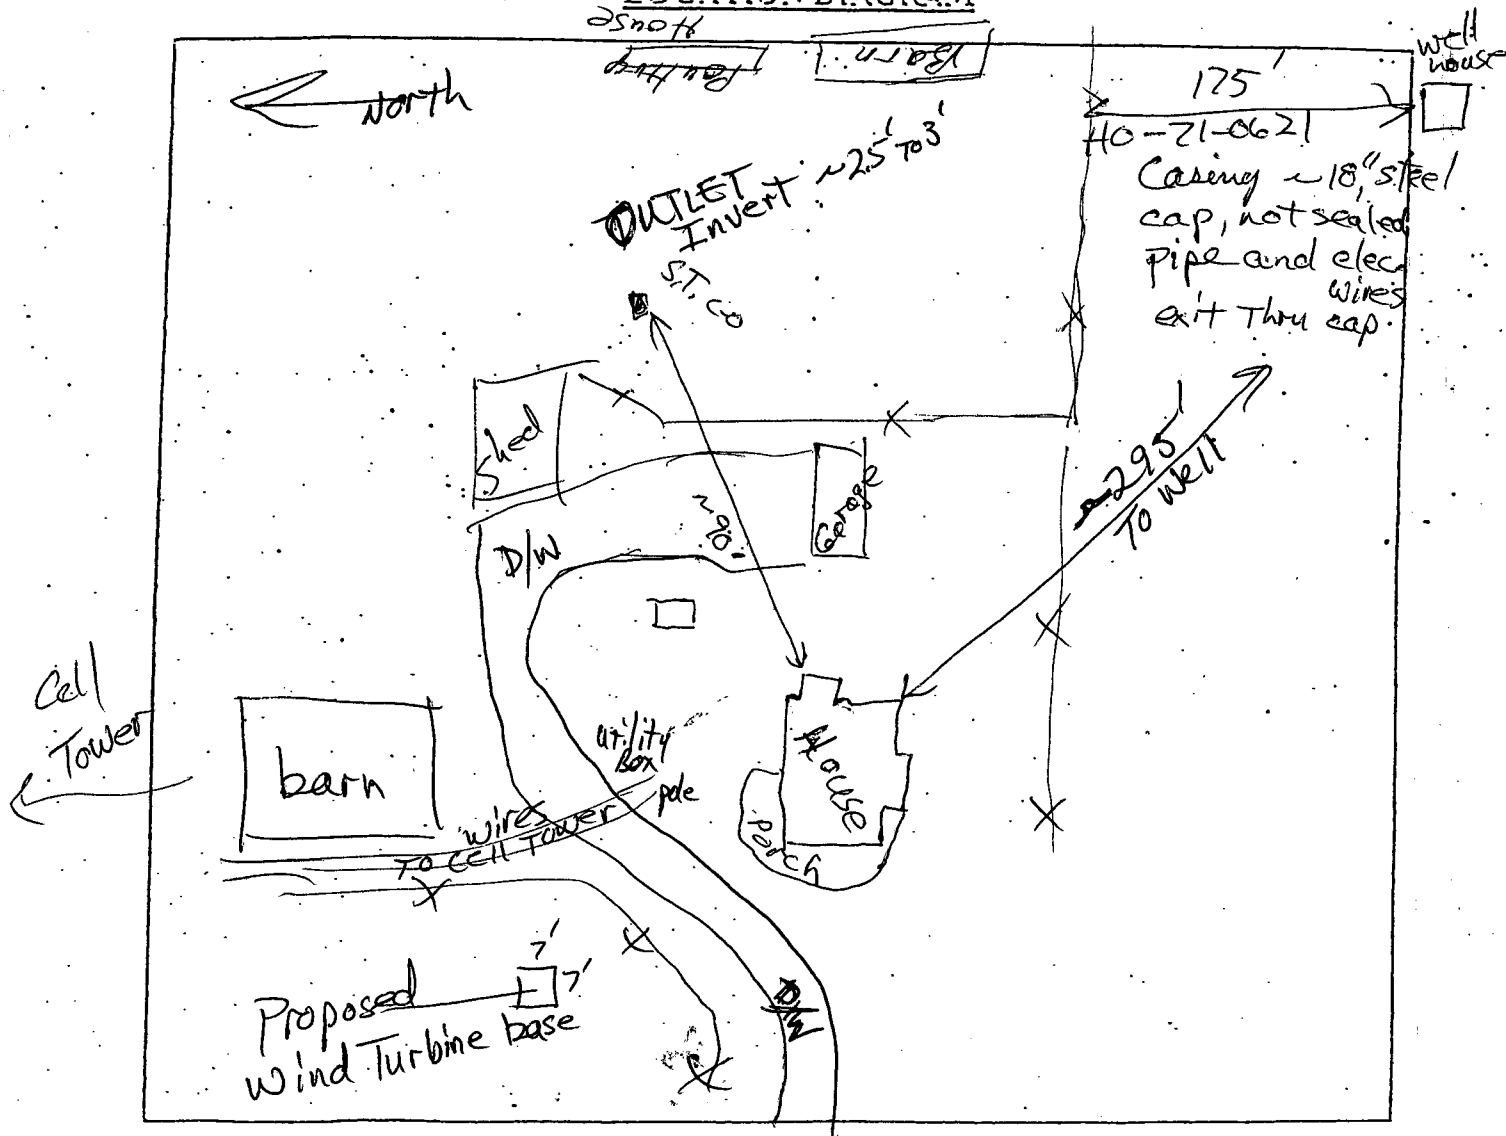 LOCATION DIAGRAM
House
Poultry
Barn
well
house
North
175'
HO-71-0621
Casing ~18", steel
cap, not sealed
pipe and elec.
wires
exit Thru cap.
OUTLET
Invert ~2.5' TO 3'
S.T. CO
Shed
Garage
~90'
~295'
TO Well
D/W
Cell
Tower
barn
utility
Box
pole
House
porch
wires
TO CELL TOWER
7'
7'
Proposed
Wind Turbine base
D/W